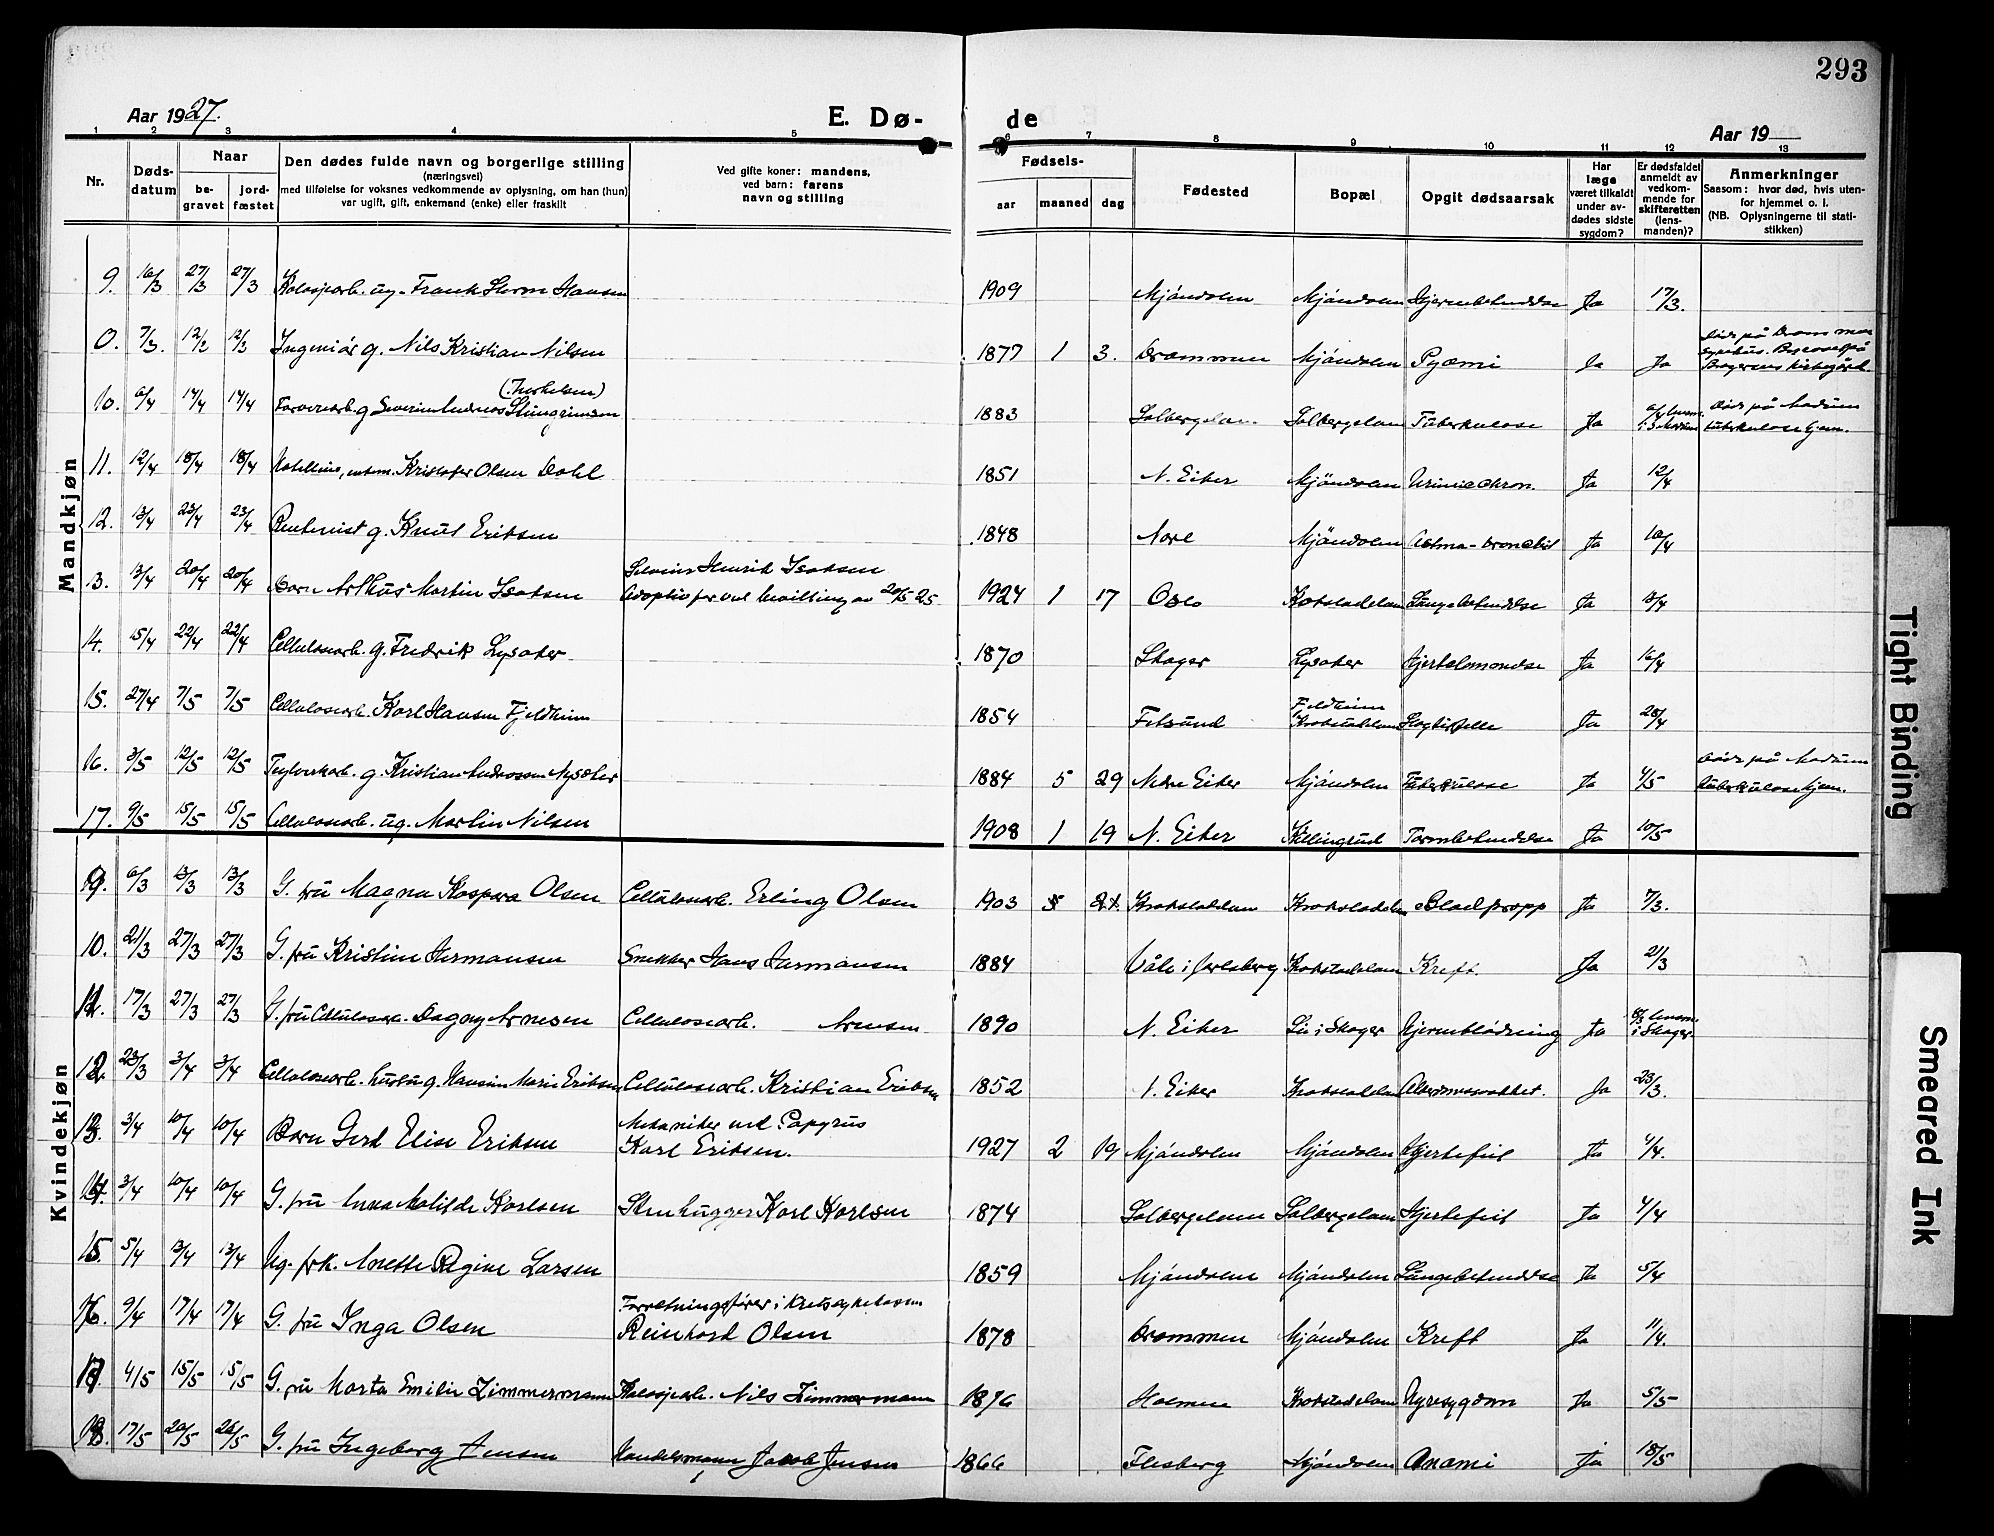 293
Aar 1927.
E. Dø-
de
Aar 19
1 2 3 4 5 6 7 8 9 10 11 12 13
Nr.
Døds-
datum
Naar
be-
gravet
jord-
fæstet
Den dødes fulde navn og borgerlige stilling
(næringsvei)
med tilføielse for voksnes vedkommende av oplysning, om han (hun)
var ugift, gift, enkemand (enke) eller fraskilt
Ved gifte koner: mandens,
ved barn: farens
navn og stilling
Fødsels-
aar maaned dag
Fødested
Bopæl
Opgit dødsaarsak
Har
læge
været tilkaldt
under av-
dødes sidste
sygdom?
Er dødsfaldet
anmeldt av
vedkom-
mende for
skifteretten
(lens-
manden)?
Anmerkninger
Saasom: hvor død, hvis uten-
for hjemmet o. l.
(NB. Oplysningerne til stati-
stikken)
Mandkjøn
9. 16/3 27/3 27/3 ug. Frank Storm Hansen 1909 Mjøndalen Mjøndalen Hjernebetendelse Ja 17/3.
0. 7/3. 12/3 12/3 Ingeniør g. Nils Kristian Nilsen 1877 1 3. Drammen Mjøndalen Pyæmi Ja Ja
Døds på Drammen
sykehus.
Bragernes kirkegård
10. 6/4 14/4 14/4 g Severin Andreas 1883 Solbergelven Solbergelven Tuberkulose Ja
Død på Modum
tuberkulosehjem.
11. 12/4 18/4 18/4 Kristofer Olsen Dahl 1851 N. Eiker Mjöndalen Ja 12/4
12. 13/4 23/4 23/4 g. Knut Eriksen 1848 Nore Mjöndalen Ja 16/4
Henrik Isaksen
13. 13/4 20/4 20/4 Barn Arthur Martin Isaksen Adoptivfar ved bevilling av 20/5 25. 1924 1 17 Oslo Krokstadelven Lungebetendelse Ja
14. 15/4 22/4 22/4 Cellulosearb. g. Fredrik Lysaker 1870 Skoger Lysaker Ja 16/4
15. 27/4 7/5 7/5 Cellulosearb. Karl Hansen Fjeldheim 1854 Filsund
Fjeldheim
Krokstadelven Slagtilfelle Ja 28/4
16. 3/5 12/5 12/5 Teglverksarb. g. Kristian Andreassen Nysæter 1884 5 29 Nedre Eiker Mjøndalen Tuberkulose Ja 4/5
Død på Modum
tuberkulosehjem.
17. 9/5 15/5 15/5 Cellulosearb. ug. Martin Nilsen 1908 1 19 N. Eiker Killingrud Tarmbetendelse Ja 10/5
Kvindekjøn
9. 6/3 13/3 13/3 G. fru Magna Kaspara Olsen Cellulosearb. Erling Olsen 1903 Krokstadelven Krokstadelven Blodpropp Ja 7/3.
10. 21/3 27/3 27/3 G. fru Kristine Hermansen Snekker Hans Hermansen 1884 Våle i Jarlsberg Krokstadelven Kreft. Ja 21/3
11. 17/3 27/3 27/3 G. fru Cellulosearb. Dagny Arnesen Cellulosearb. Arnesen 1890 N. Eiker Lie i Skoger Hjerneblödning Ja
i Skoger
12. 23/3 3/4 3/4 Cellulosearb. hustru g. Hansine Marie Eriksen Cellulosearb. Kristian Eriksen 1852 Eiker Krokstadelven Alderdomssvakhet. Ja 23/3.
Mekaniker ved Papyrus
13. 3/4 10/4 10/4 Barn Gerd Elise Eriksen Karl Eriksen. 1927 2 19 Mjøndalen Mjøndalen Hjertefeil Ja 4/4.
14. 3/4 10/4 10/4 G. fru Anna Matilde Karlsen Stenhugger Karl Karlsen 1874 Solbergelven Solbergelven Hjertefeil Ja 4/4
15. 5/4 13/4 13/4 Ug. frk. Anette Regine Larsen 1859 Mjøndalen Mjøndalen Lungebetendelse Ja 5/4
Forretningsfører i Kretssykekassen
16. 9/4 17/4 17/4 G. fru Inga Olsen Reinhard Olsen 1878 Drammen Mjøndalen Kreft Ja 11/4.
17. 4/5 15/5 15/5 G. fru Marta Emilie Zimmermann Nils Zimmermann 1876 Holmen Krokstadelven Nyresygdom Ja 5/5
18. 17/5 26/5 26/5 G. fru Ingeborg Jensen Handelsmann Jacob Jensen 1866 Flesberg Mjøndalen Anæmi Ja 18/5
Tight Binding
Smeared Ink